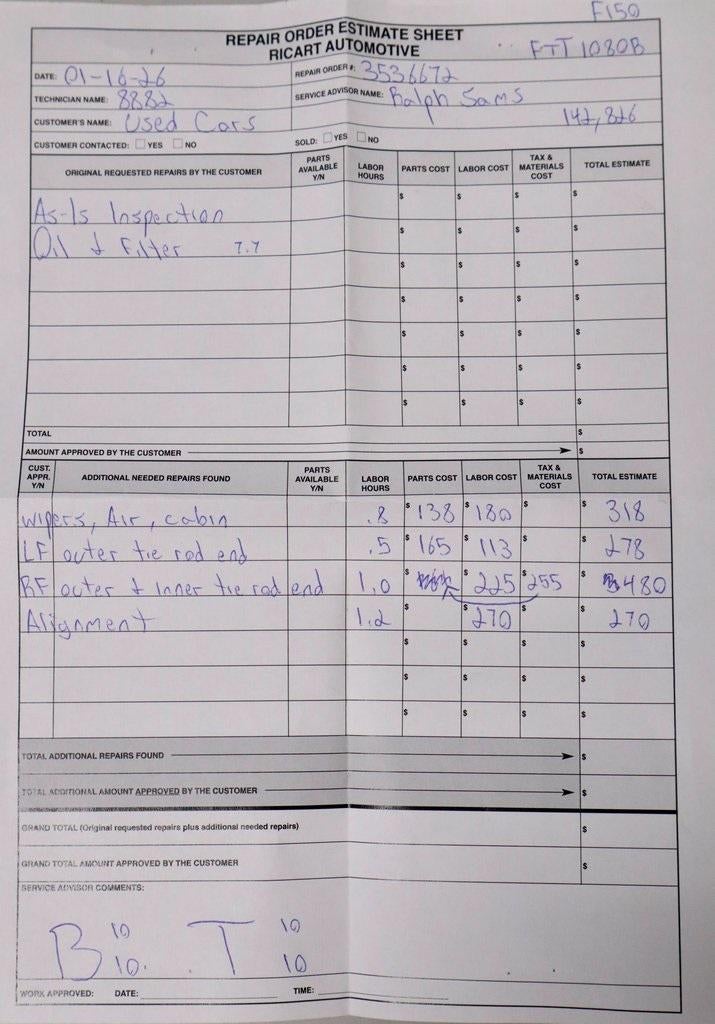 F150
REPAIR ORDER ESTIMATE SHEET
RICART AUTOMOTIVE
FTT 1080B
DATE: 01-16-26 REPAIR ORDER #: 3536672
TECHNICIAN NAME: 8882 SERVICE ADVISOR NAME: Ralph Sams
CUSTOMER'S NAME: Used Cars 142,826
CUSTOMER CONTACTED: YES NO SOLD: YES NO
ORIGINAL REQUESTED REPAIRS BY THE CUSTOMER PARTS AVAILABLE Y/N LABOR HOURS PARTS COST LABOR COST TAX & MATERIALS COST TOTAL ESTIMATE
As-Is Inspection $ $ $ $
Oil & Filter 7.7 $ $ $ $
$ $ $ $
$ $ $ $
$ $ $ $
$ $ $ $
$ $ $ $
TOTAL $
AMOUNT APPROVED BY THE CUSTOMER $
CUST. APPR. Y/N ADDITIONAL NEEDED REPAIRS FOUND PARTS AVAILABLE Y/N LABOR HOURS PARTS COST LABOR COST TAX & MATERIALS COST TOTAL ESTIMATE
wipers, Air, cabin .8 $138 $180 $ $318
LF outer tie rod end .5 $165 $113 $ $278
RF outer & Inner tie rod end 1.0 $ $225 $255 $480
Alignment 1.2 $ $270 $ $270
$ $ $ $
$ $ $ $
$ $ $ $
TOTAL ADDITIONAL REPAIRS FOUND $
TOTAL ADDITIONAL AMOUNT APPROVED BY THE CUSTOMER $
GRAND TOTAL (Original requested repairs plus additional needed repairs) $
GRAND TOTAL AMOUNT APPROVED BY THE CUSTOMER $
SERVICE ADVISOR COMMENTS:
B 10 10. T 10 10
WORK APPROVED: DATE: TIME: